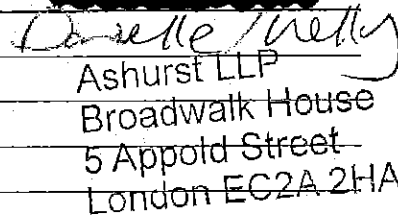 Danielle Kelly
Ashurst LLP
Broadwalk House
5 Appold Street
London EC2A 2HA